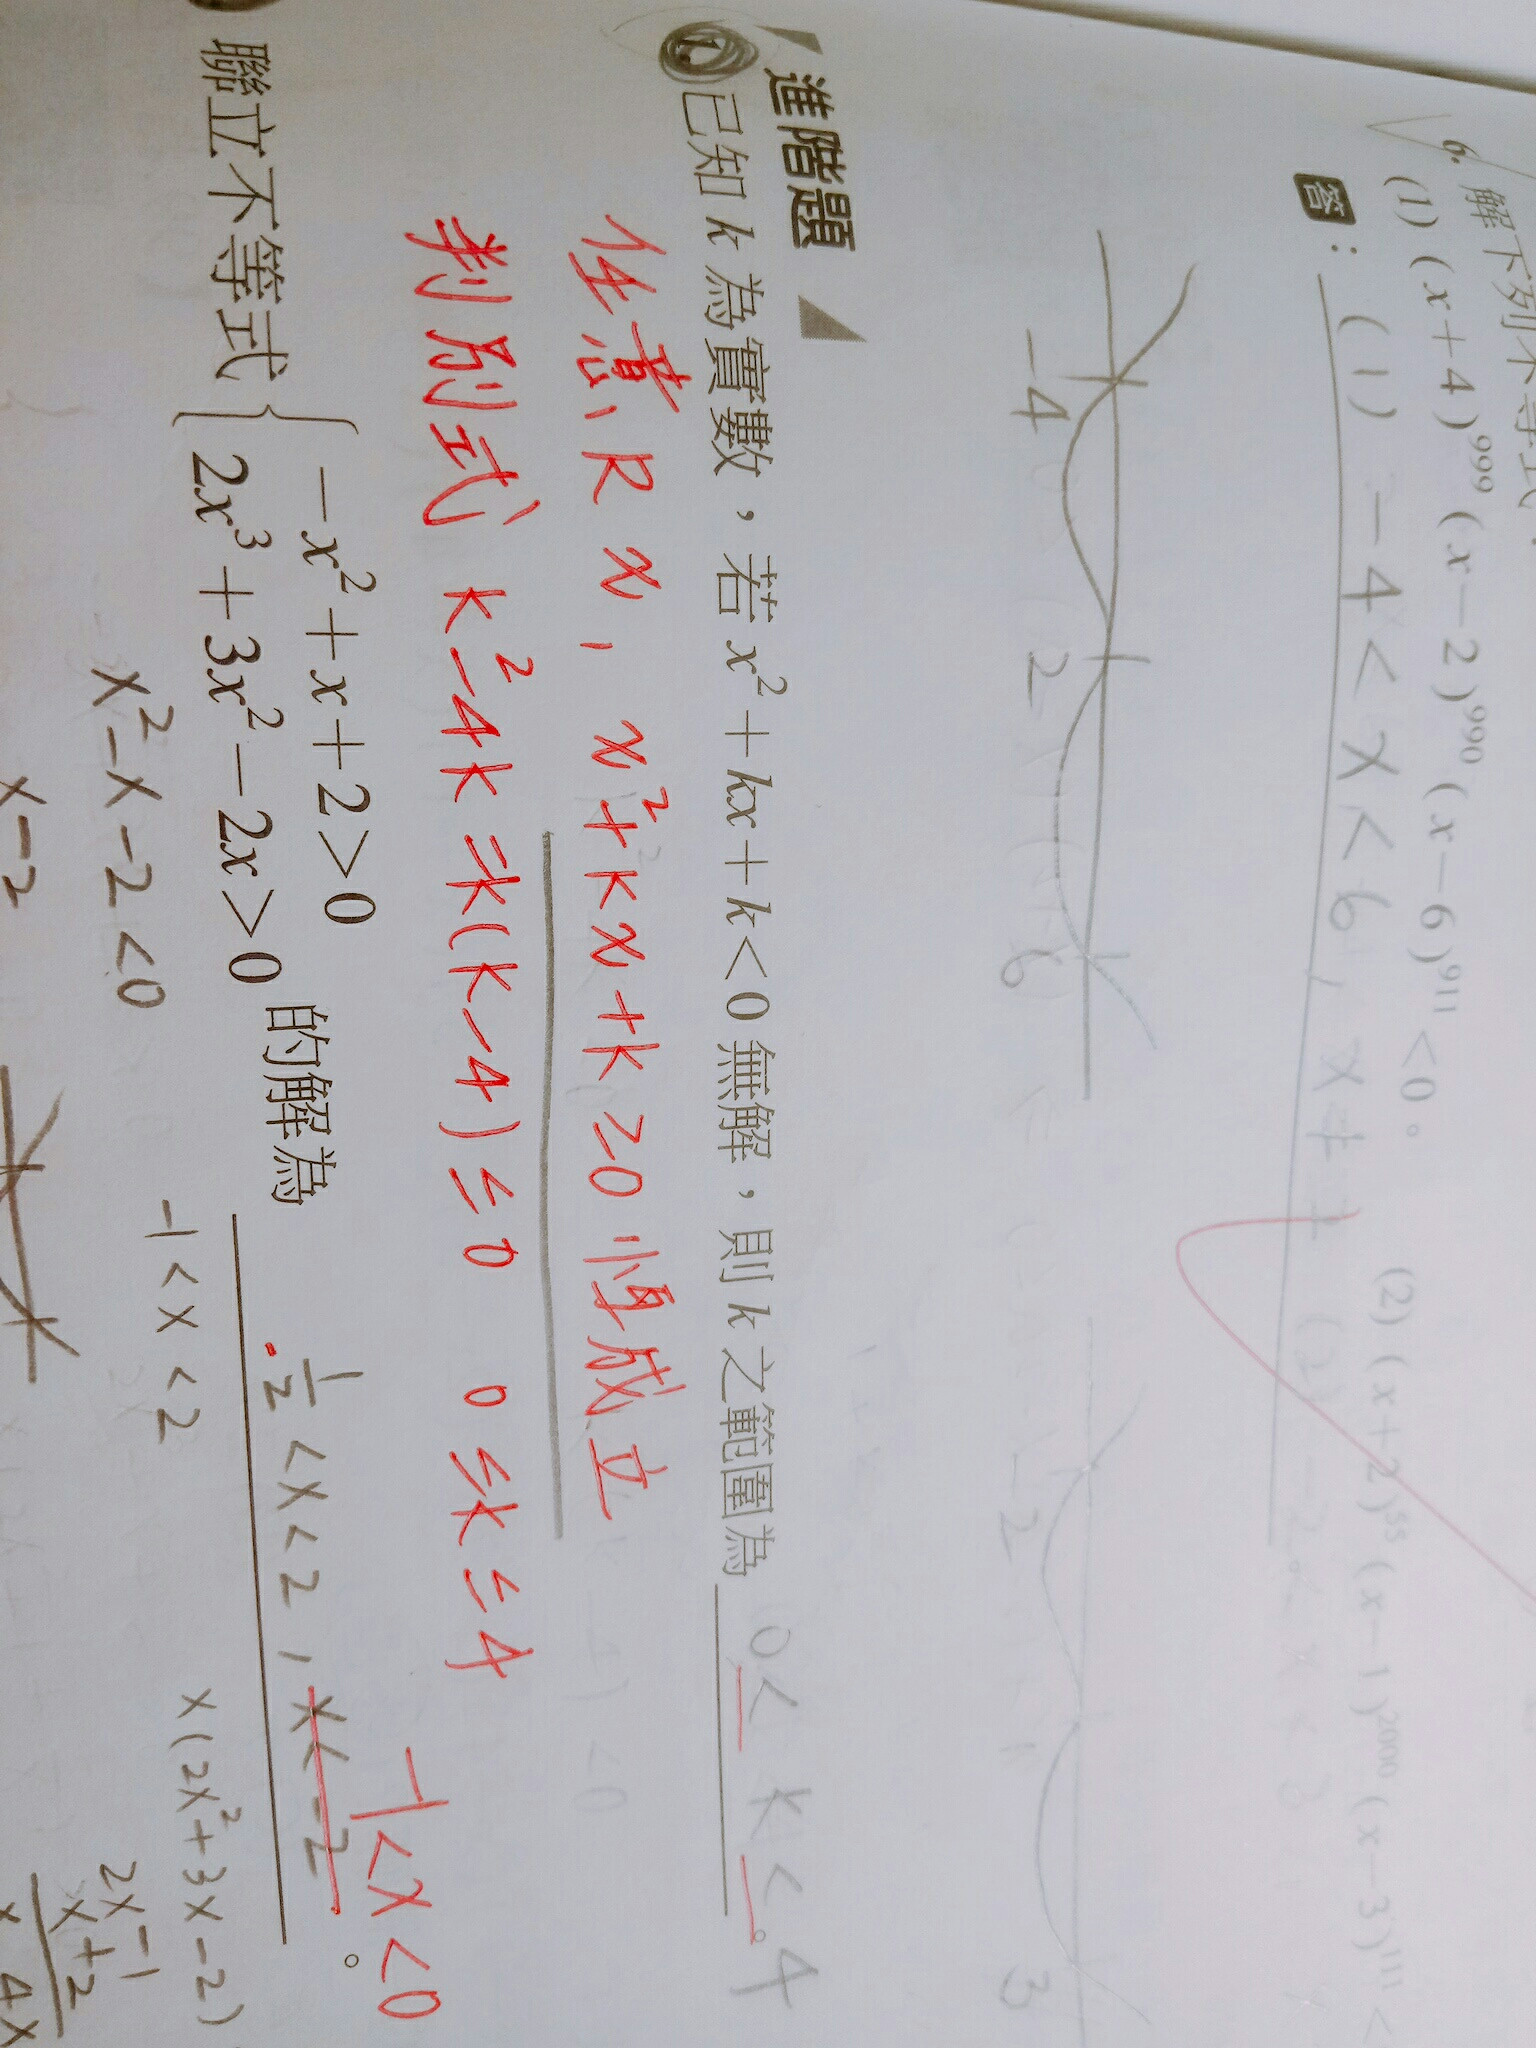 6. 解下列不等式
(1) (x+4)⁹⁹⁹(x−2)⁹⁹⁰(x−6)⁹¹¹<0。 (2) (x+2)⁵⁵(x−1)²⁰⁰⁰(x−3)¹¹¹<
答：(1) −4<x<6, x≠2 (2) −2<x<3
−4 2 6 −2 1 3
進階題
1. 已知 k 為實數，若 x²+kx+k<0 無解，則 k 之範圍為 0≤k≤4 。
任意 R x, x²+kx+k≥0 恆成立
判別式 k²−4k=k(k−4)≤0 0≤k≤4
−1<x<0
聯立不等式 { −x²+x+2>0
2x³+3x²−2x>0 的解為 1/2<x<2, x<−2 。
x²−x−2<0 −1<x<2 x(2x²+3x−2)
x−2 2x−1
x+2
4x